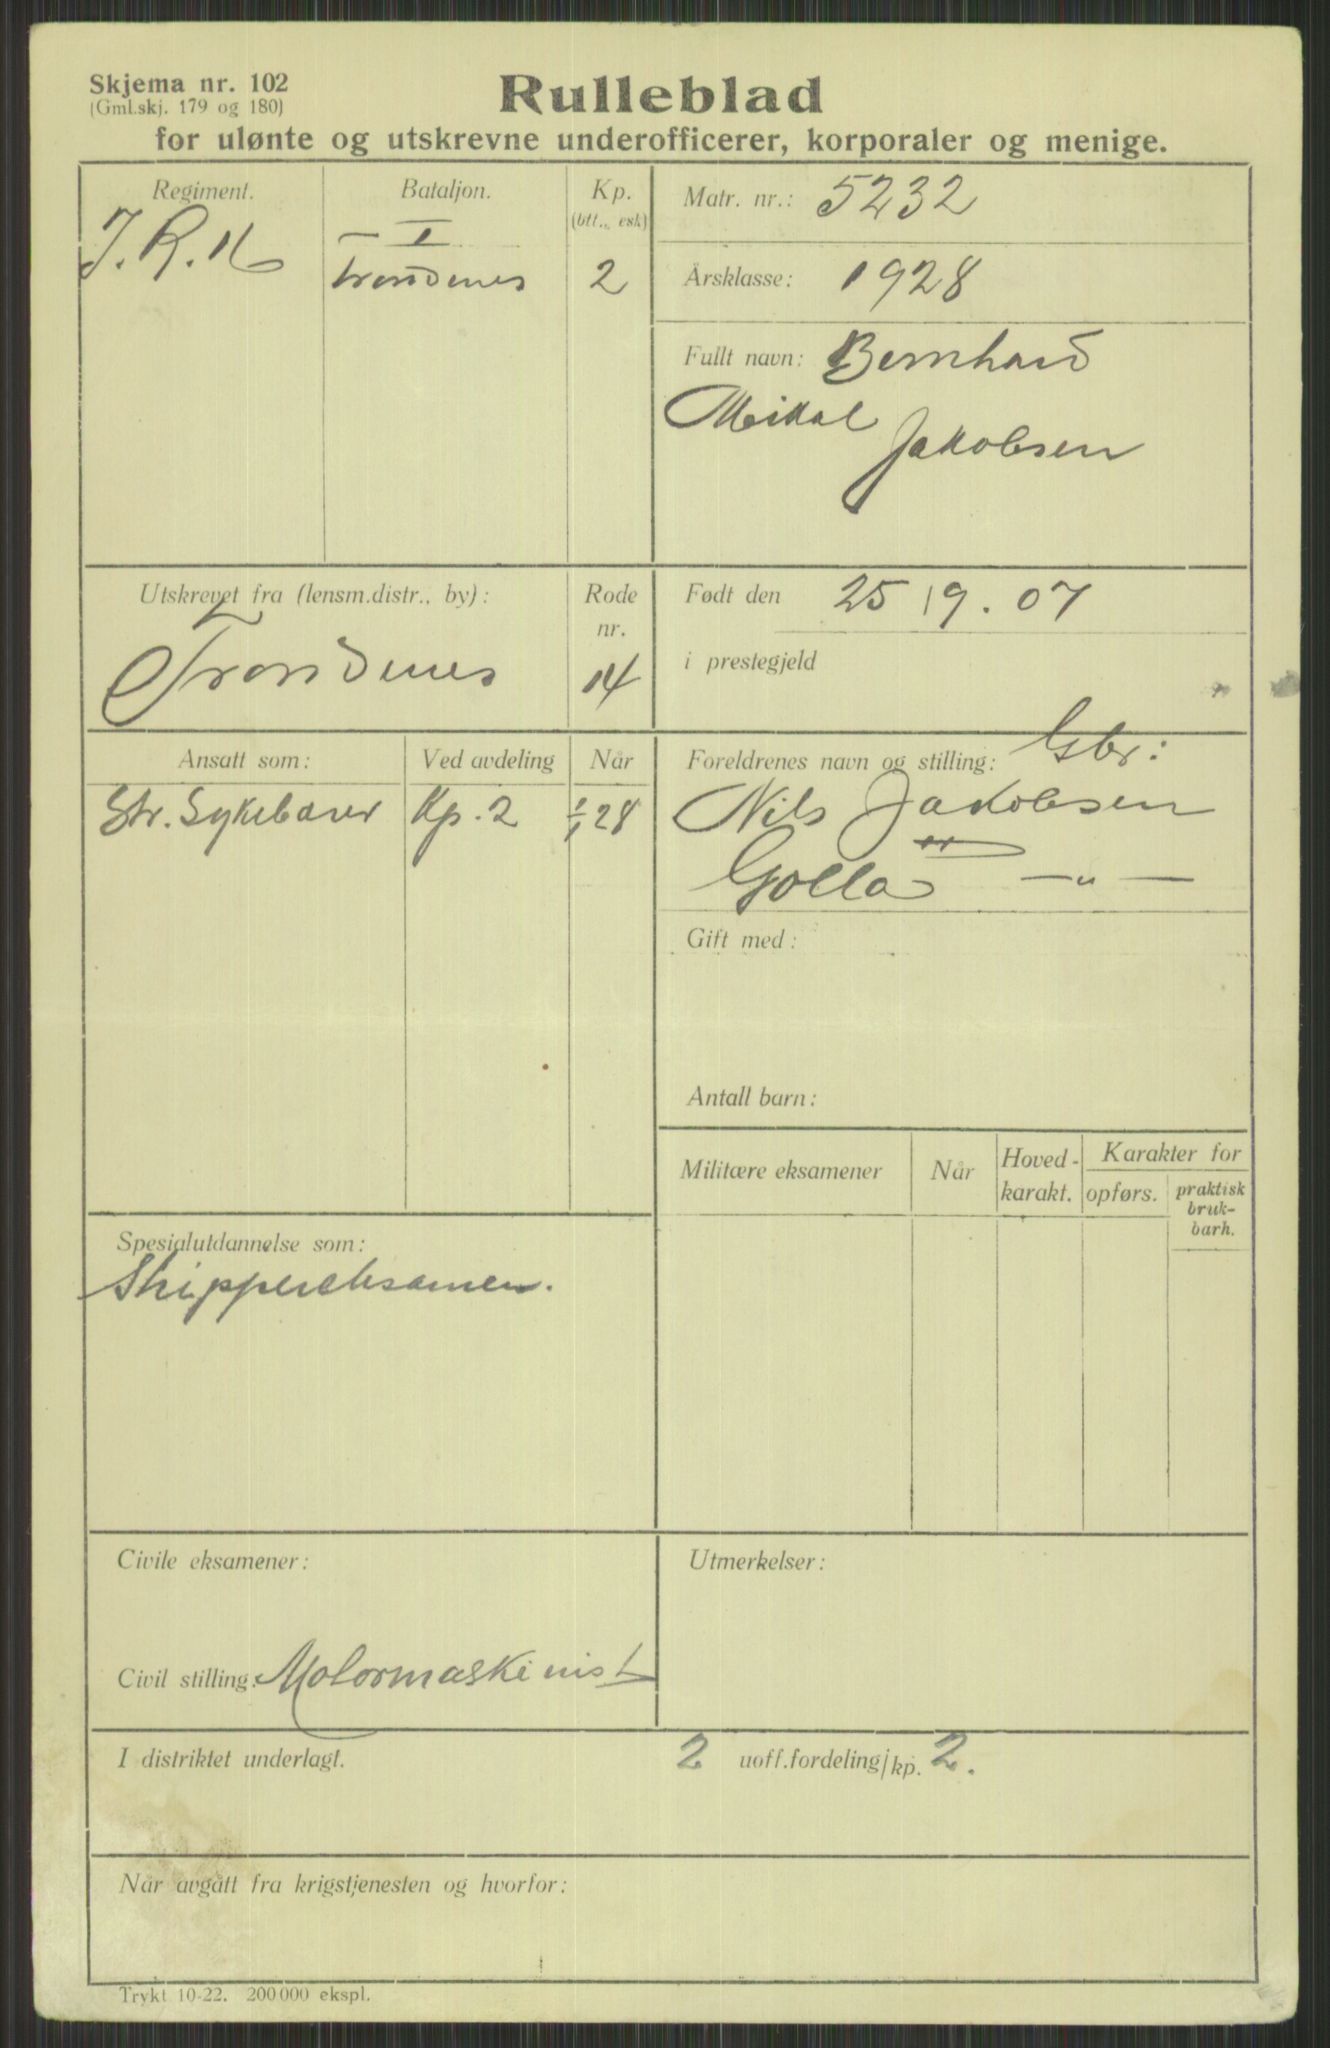 Skjema nr. 102
(Gml.skj. 179 og 180)
Rulleblad
for ulønte og utskrevne underofficerer, korporaler og menige.
Regiment.
J.R.16
Bataljon.
— I
Trondenes
Kp.
(btt., esk)
2
Matr. nr.: 5232
Årsklasse: 1928
Fullt navn: Bernhard
Mikal
Jakobsen
Utskrevet fra (lensm.distr., by):
Trondenes
Rode
nr.
14
Født den 25/9.07
i prestegjeld
Ansatt som:
Str. Sykebærer
Ved avdeling
Kp. 2
Når
1/1 28
Foreldrenes navn og stilling: Gbr:
Nils Jakobsen
Golla —"—
Gift med:
Antall barn:
Militære eksamener
Når
Hoved-
karakt.
Karakter for
opførs.
praktisk
bruk-
barh.
Spesialutdannelse som:
Skippereksamen.
Civile eksamener:
Civil stilling: Motormaskinist
Utmerkelser:
I distriktet underlagt. 2 uoff.fordeling/kp. 2.
Når avgått fra krigstjenesten og hvorfor:
Trykt 10-22. 200 000 ekspl.